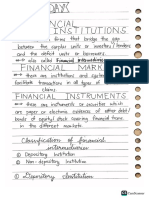 DAY 1
FINANCIAL
INSTITUTIONS
firms that bridge the gap
between the surplus units or investors / lenders
and the deficit units or borrowers.
also called Financial Intermediaries
FINANCIAL MARKETS
these are institutions and systems
that facilitate transactions in all types of
financial claims.
FINANCIAL INSTRUMENTS
these are instruments or securities which
are paper or electronic evidence of debt/
bonds of equity stock sourcing financial from
in the different markets.
Classifications of financial
intermediaries
① Depository Institution
② Non depository Institution
① Depository Institutions
CS CamScanner